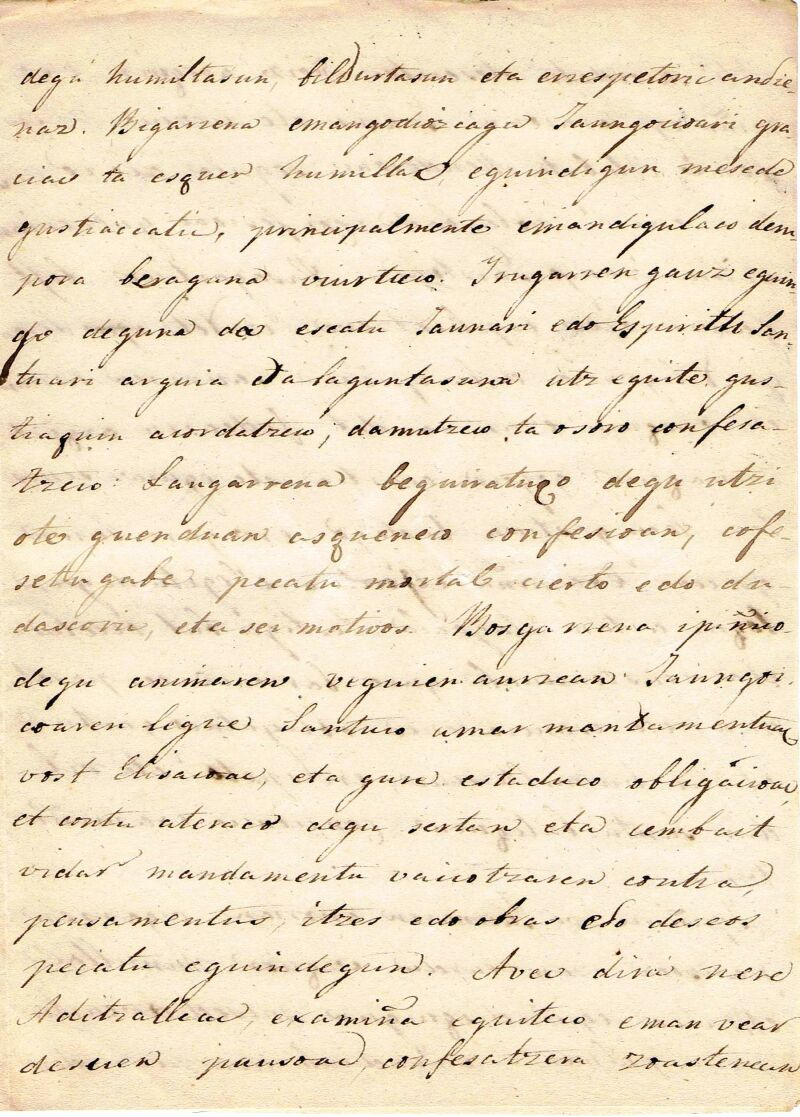 degu humiltasun, bildurtasun eta errespetoric andie-
naz. Bigarrena emangodiozcagu Jaungoicoari gra
ciac ta esquer humillac, eguindigun mesede
gustiaccatic, principalmente emandigulaco dem-
pora beragana viurtceco. Irugarren gauz eguin-
go deguna da escatu Jaunari edo Espiritu San-
tuari arguia eta laguntasuna utz eguite gus-
tiaquin acordatzeco, damutzeco ta osoro confesa-
tzeco. Laugarrena beguiratuco degu utzi
ote guenduan asqueneco confesioan, cofe-
satu gabe pecatu mortal cierto edo du-
dascoric, eta ser motivos. Bosgarrena ipiñico
degu animaren veguien aurrean Jaungoi
coaren legue Santuco amar mandamentuac
vost Elisacoac, eta gure estaduco obligacioac,
et contu ateraco degu sertan eta cembait
vidar mandamentu vacotzaren contra,
pensamentus, itzes edo obras edo deseos
pecatu eguindegun. Avec dira nere
Aditzalleac, examiña eguiteco eman vear
desuen pausoac, confesatzera zoastenean